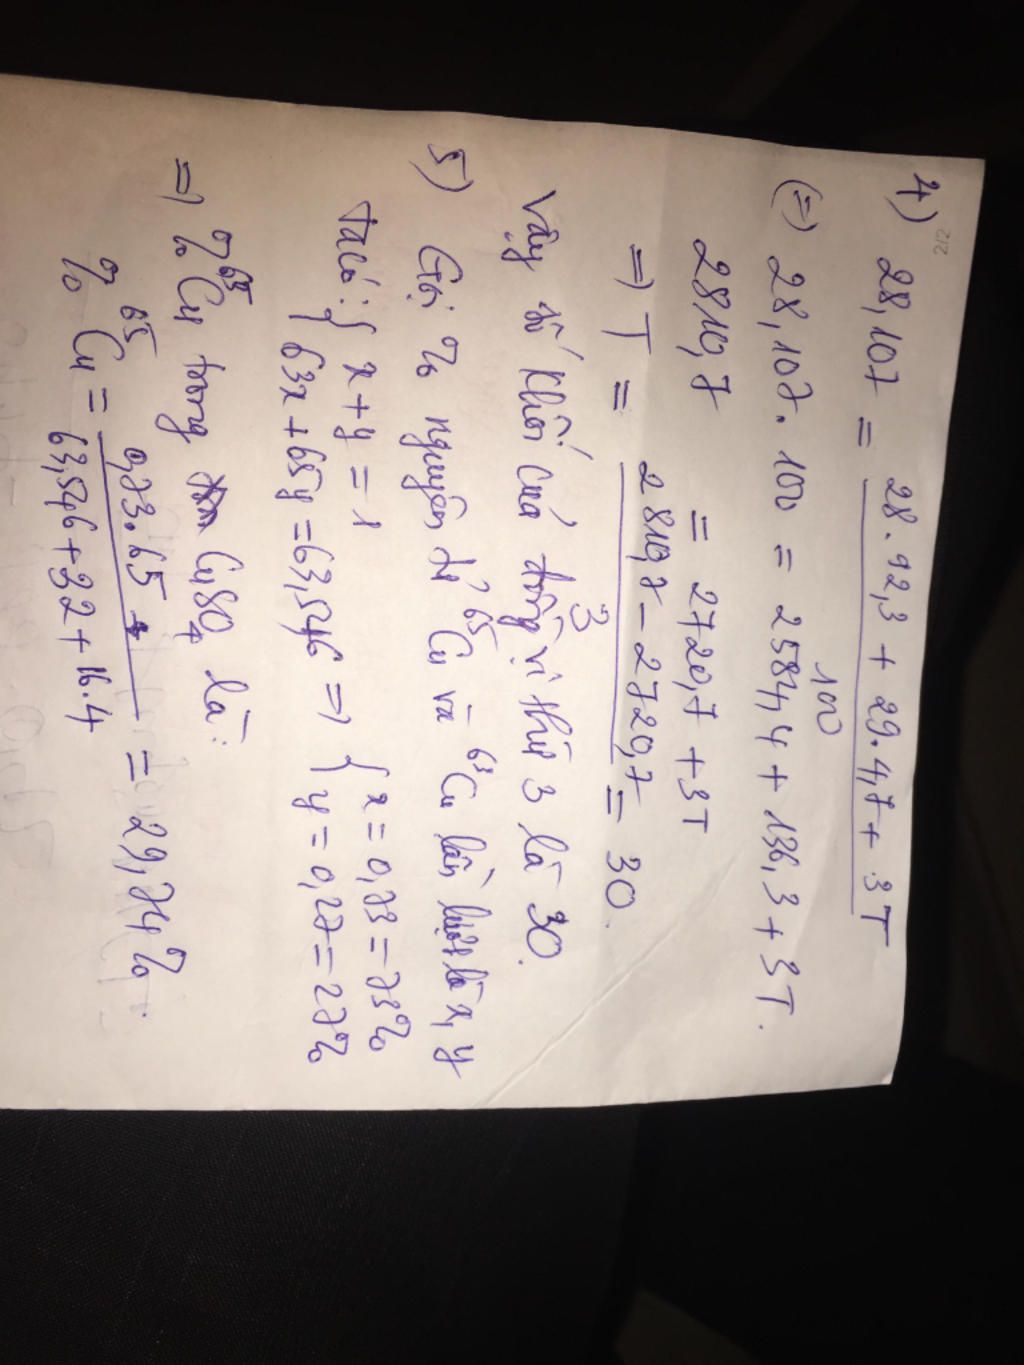 212
4) 28,107 = 28.92,3 + 29.4,7 + 3T / 100
(=) 28,107.100 = 2584,4 + 136,3 + 3T.
2810,7 = 2720,7 + 3T
=) T = 2810,7 - 2720,7 / 3 = 30.
Vậy số khối của đồng vị thứ 3 là 30.
5) Gọi % nguyên tử ⁶⁵Cu và ⁶³Cu lần lượt là x, y
Ta có: { x + y = 1
63x + 65y = 63,546 =) { x = 0,73 = 73%
y = 0,27 = 27%
=) % ⁶⁵Cu trong CuSO₄ là:
% ⁶⁵Cu = 0,73.65 / 63,546 + 32 + 16.4 = 29,74%.